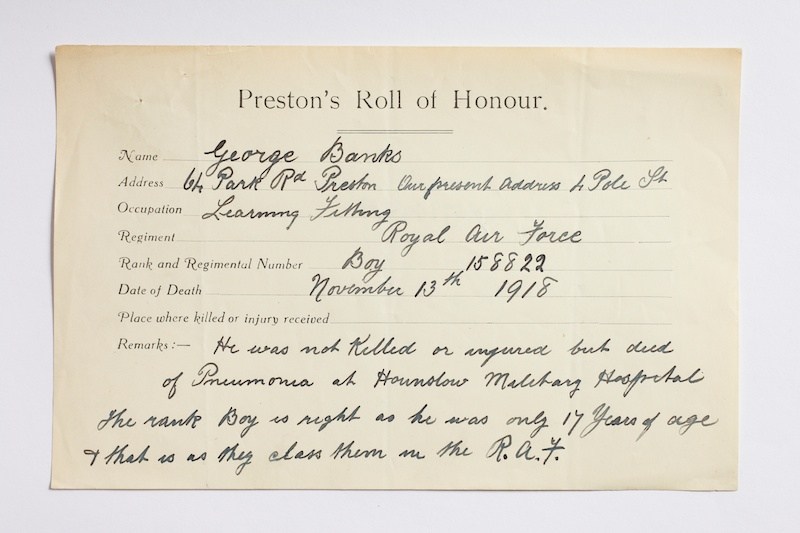 Preston's Roll of Honour.
Name George Banks
Address 64 Park Rd Preston Our present Address 4 Pole St
Occupation Learning Fitting
Regiment Royal Air Force
Rank and Regimental Number Boy 158822
Date of Death November 13th 1918
Place where killed or injury received
Remarks :— He was not Killed or injured but died
of Pneumonia at Hounslow Military Hospital
The rank Boy is right as he was only 17 Years of age
& that is as they class them in the R.A.F.